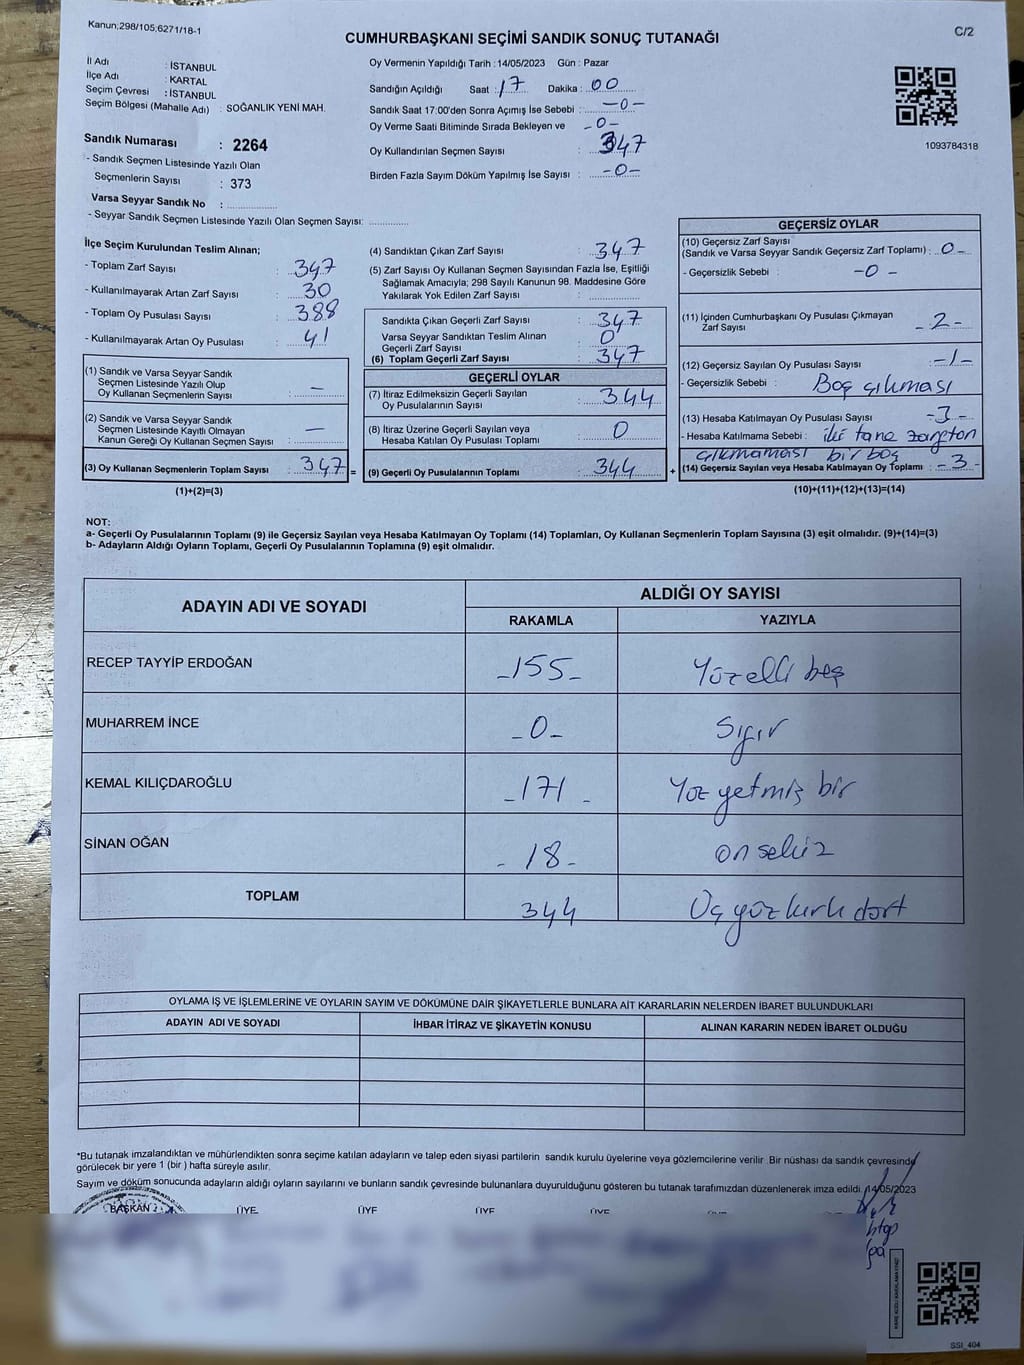 Kanun;298/105;6271/18-1
C/2
CUMHURBAŞKANI SEÇİMİ SANDIK SONUÇ TUTANAĞI
İl Adı : İSTANBUL
İlçe Adı : KARTAL
Seçim Çevresi : İSTANBUL
Seçim Bölgesi (Mahalle Adı) : SOĞANLIK YENİ MAH.
Sandık Numarası : 2264
- Sandık Seçmen Listesinde Yazılı Olan
Seçmenlerin Sayısı : 373
Varsa Seyyar Sandık No :
- Seyyar Sandık Seçmen Listesinde Yazılı Olan Seçmen Sayısı:
Oy Vermenin Yapıldığı Tarih : 14/05/2023 Gün : Pazar
Sandığın Açıldığı Saat : 17 Dakika : 00
Sandık Saat 17:00'den Sonra Açımış İse Sebebi : -0-
Oy Verme Saati Bitiminde Sırada Bekleyen ve -0-
Oy Kullandırılan Seçmen Sayısı : 347
Birden Fazla Sayım Döküm Yapılmış İse Sayısı : -0-
1093784318
İlçe Seçim Kurulundan Teslim Alınan;
- Toplam Zarf Sayısı : 347
- Kullanılmayarak Artan Zarf Sayısı : 30
- Toplam Oy Pusulası Sayısı : 388
- Kullanılmayarak Artan Oy Pusulası : 41
(1) Sandık ve Varsa Seyyar Sandık
Seçmen Listesinde Yazılı Olup
Oy Kullanan Seçmenlerin Sayısı : —
(2) Sandık ve Varsa Seyyar Sandık
Seçmen Listesinde Kayıtlı Olmayan
Kanun Gereği Oy Kullanan Seçmen Sayısı : —
(3) Oy Kullanan Seçmenlerin Toplam Sayısı : 347 =
(1)+(2)=(3)
(4) Sandıktan Çıkan Zarf Sayısı : 347
(5) Zarf Sayısı Oy Kullanan Seçmen Sayısından Fazla İse, Eşitliği
Sağlamak Amacıyla; 298 Sayılı Kanunun 98. Maddesine Göre
Yakılarak Yok Edilen Zarf Sayısı :
Sandıkta Çıkan Geçerli Zarf Sayısı : 347
Varsa Seyyar Sandıktan Teslim Alınan
Geçerli Zarf Sayısı : 0
(6) Toplam Geçerli Zarf Sayısı : 347
GEÇERLİ OYLAR
(7) İtiraz Edilmeksizin Geçerli Sayılan
Oy Pusulalarının Sayısı : 344
(8) İtiraz Üzerine Geçerli Sayılan veya
Hesaba Katılan Oy Pusulası Toplamı : 0
(9) Geçerli Oy Pusulalarının Toplamı : 344 +
GEÇERSİZ OYLAR
(10) Geçersiz Zarf Sayısı
(Sandık ve Varsa Seyyar Sandık Geçersiz Zarf Toplamı) : 0-
- Geçersizlik Sebebi : -0-
(11) İçinden Cumhurbaşkanı Oy Pusulası Çıkmayan
Zarf Sayısı : -2-
(12) Geçersiz Sayılan Oy Pusulası Sayısı : -1-
- Geçersizlik Sebebi : Boş çıkması
(13) Hesaba Katılmayan Oy Pusulası Sayısı : -3-
- Hesaba Katılmama Sebebi : iki tane zarftan
çıkmaması bir boş
(14) Geçersiz Sayılan veya Hesaba Katılmayan Oy Toplamı : -3-
(10)+(11)+(12)+(13)=(14)
NOT:
a- Geçerli Oy Pusulalarının Toplamı (9) ile Geçersiz Sayılan veya Hesaba Katılmayan Oy Toplamı (14) Toplamları, Oy Kullanan Seçmenlerin Toplam Sayısına (3) eşit olmalıdır. (9)+(14)=(3)
b- Adayların Aldığı Oyların Toplamı, Geçerli Oy Pusulalarının Toplamına (9) eşit olmalıdır.
ADAYIN ADI VE SOYADI
ALDIĞI OY SAYISI
RAKAMLA YAZIYLA
RECEP TAYYİP ERDOĞAN -155- Yüzelli beş
MUHARREM İNCE -0- Sıfır
KEMAL KILIÇDAROĞLU -171- Yüz yetmiş bir
SİNAN OĞAN -18- on sekiz
TOPLAM 344 Üç yüz kırk dört
OYLAMA İŞ VE İŞLEMLERİNE VE OYLARIN SAYIM VE DÖKÜMÜNE DAİR ŞİKAYETLERLE BUNLARA AİT KARARLARIN NELERDEN İBARET BULUNDUKLARI
ADAYIN ADI VE SOYADI İHBAR İTİRAZ VE ŞİKAYETİN KONUSU ALINAN KARARIN NEDEN İBARET OLDUĞU
*Bu tutanak imzalandıktan ve mühürlendikten sonra seçime katılan adayların ve talep eden siyasi partilerin sandık kurulu üyelerine veya gözlemcilerine verilir. Bir nüshası da sandık çevresinde
görülecek bir yere 1 (bir) hafta süreyle asılır.
Sayım ve döküm sonucunda adayların aldığı oyların sayılarını ve bunların sandık çevresinde bulunanlara duyurulduğunu gösteren bu tutanak tarafımızdan düzenlenerek imza edildi. 14/05/2023
BAŞKAN ÜYE ÜYE ÜYE ÜYE
SSI_404